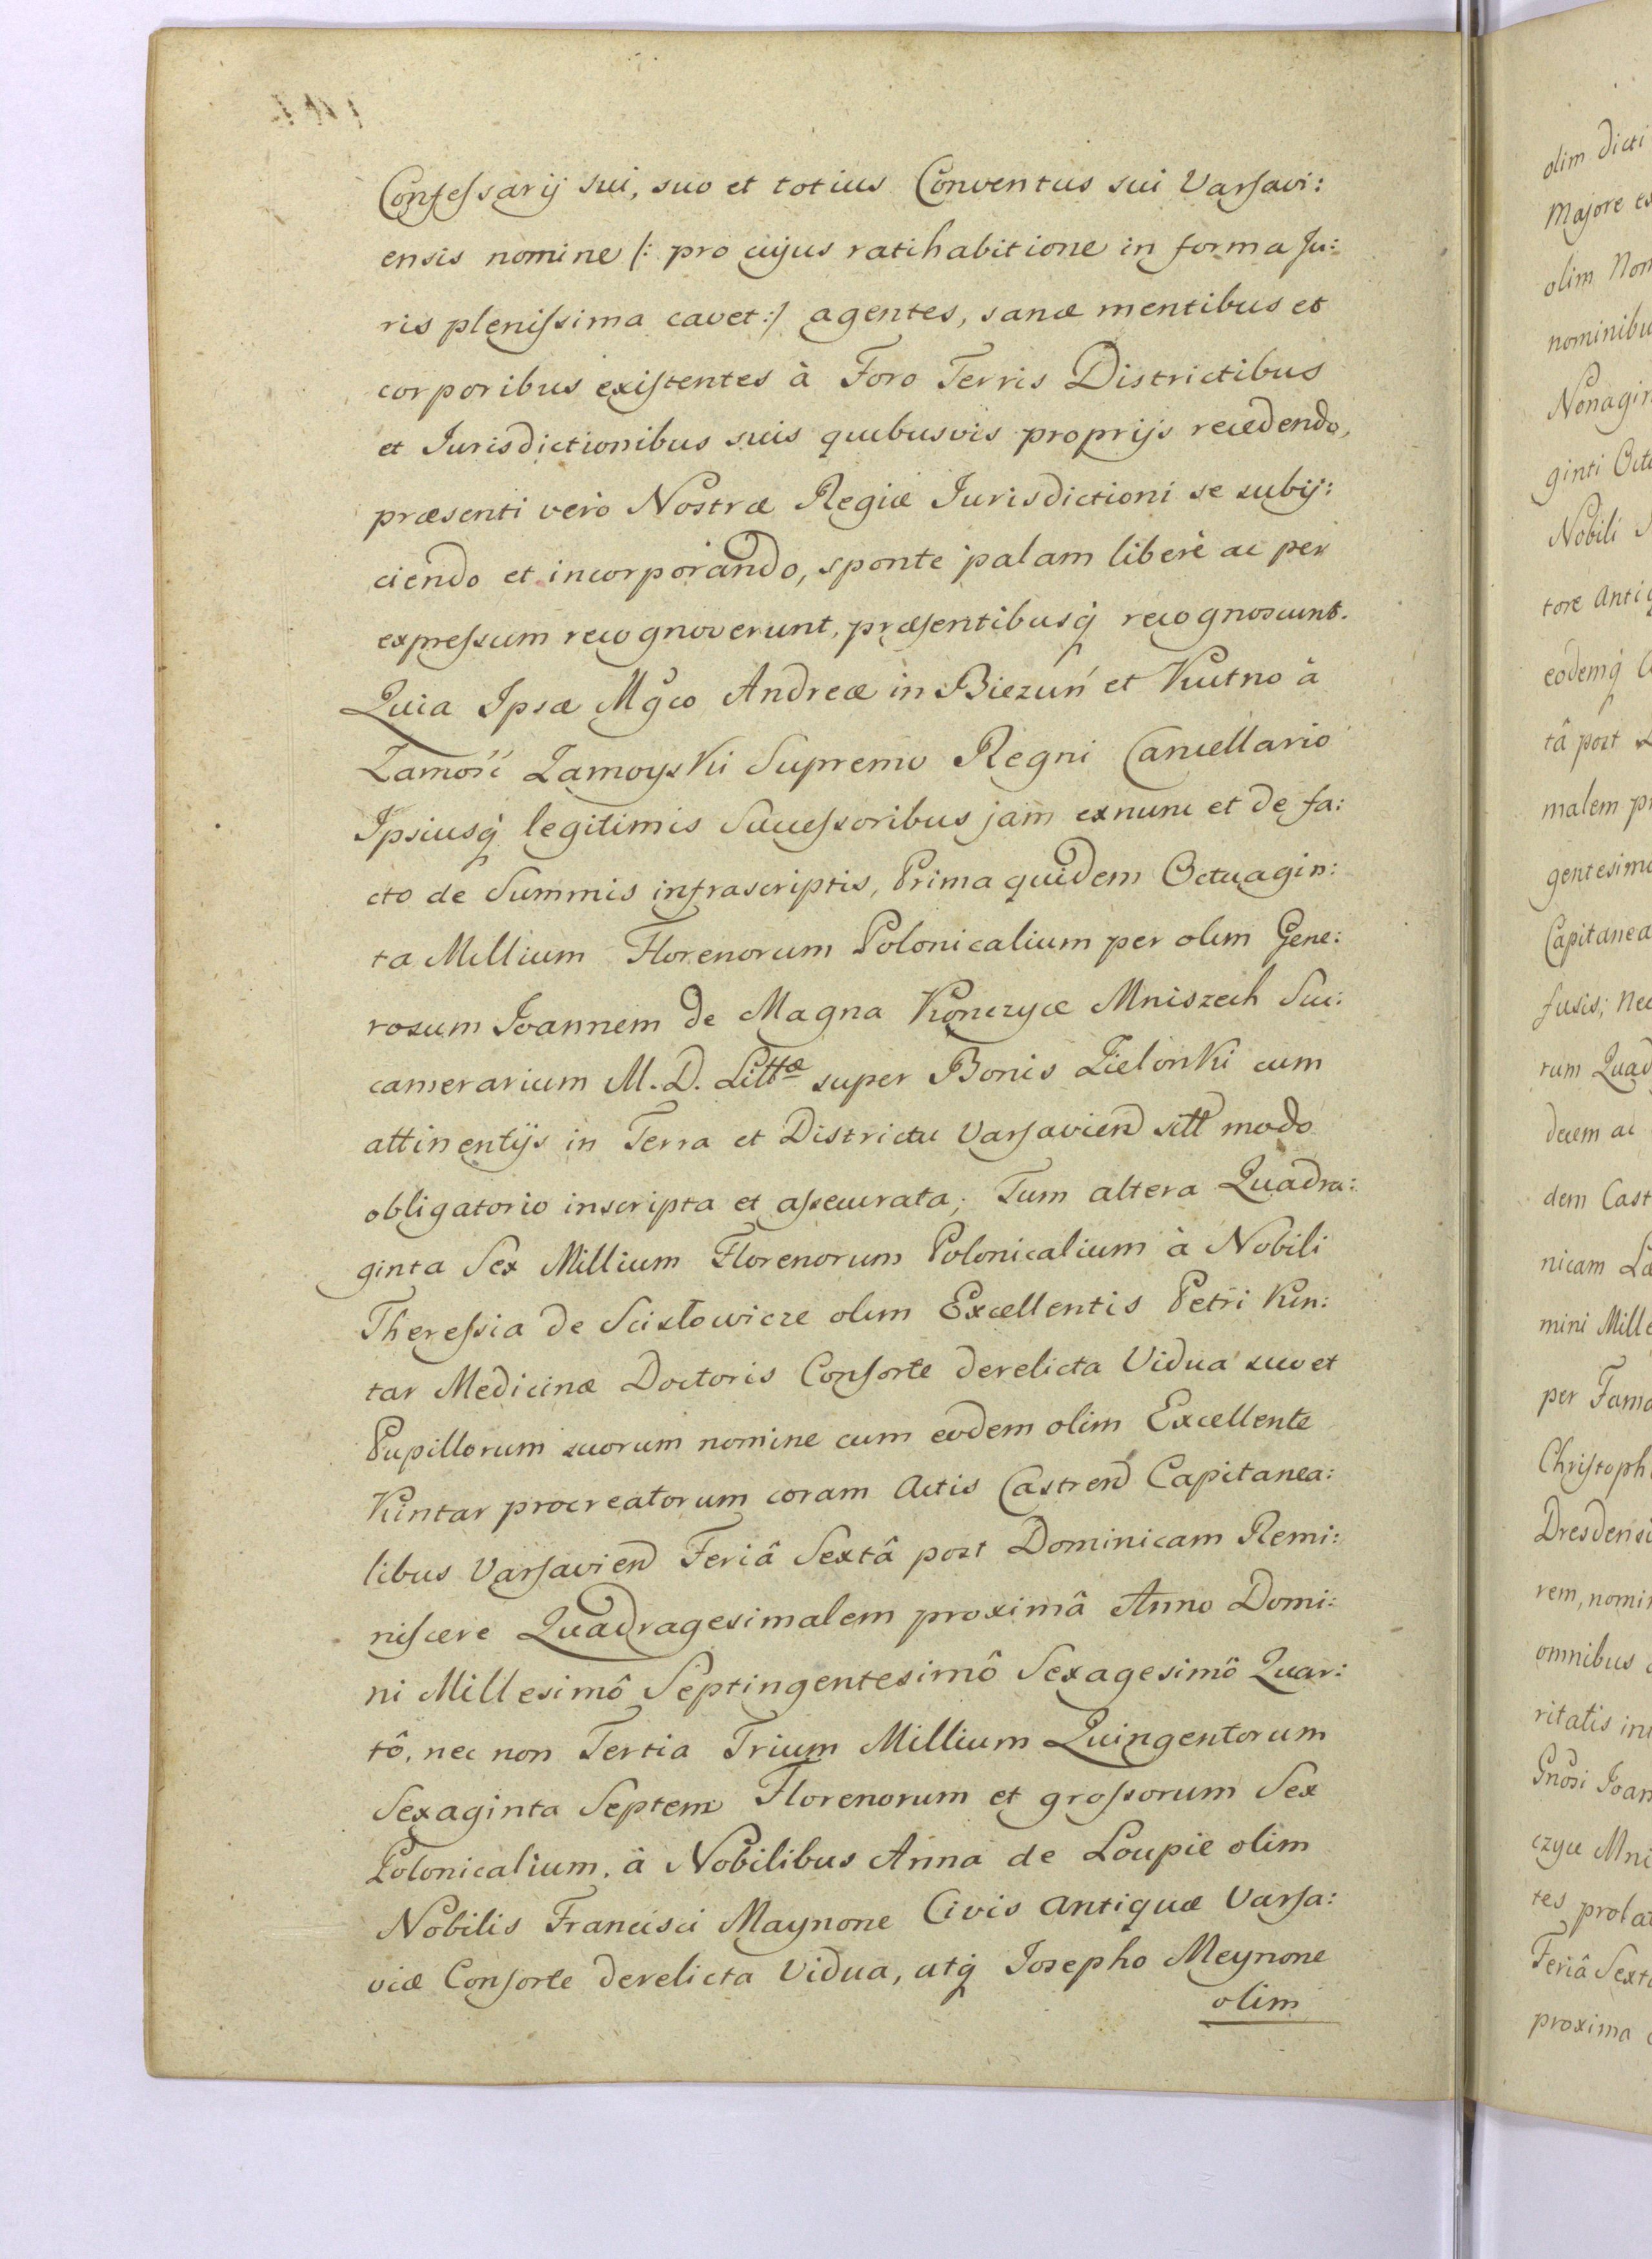 Confessarij sui, suo et totius Conventus sui Varsavi:
ensis nomine /: pro cujus ratihabitione in forma Ju:
ris plenissima cavet :/ agentes, sanæ mentibus et
corporibus existentes à Foro Terris Districtibus
et Jurisdictionibus suis quibusvis proprijs recedendo,
præsenti verò Nostræ Regiæ Jurisdictioni se subij:
ciendo et incorporando, sponte palam liberè ac per
expressum recognoverunt, præsentibusq́ recognoscunt.
Quia Ipsæ Mgco Andreæ in Biezuń et Kutno à
Zamość Zamoyski Supremo Regni Cancellario
Ipsiusq́ legitimis Successoribus jam exnunc et de fa:
cto de Summis infrascriptis, Prima quidem Octuagin:
ta Millium Florenorum Polonicalium per olim Gene:
rosum Joannem de Magna Konczyce Mniszech Suc:
camerarium M. D. Littæ super Bonis Zielonki cum
attinentijs in Terra et Districtu Varsavien sitt modo
obligatorio inscripta et assecurata; Tum altera Quadra:
ginta Sex Millium Florenorum Polonicalium à Nobili
Theressia de Scisłowicze olim Excellentis Petri Kun:
tar Medicinæ Doctoris Consorte derelicta Vidua suo et
Pupillorum suorum nomine cum eodem olim Excellente
Kuntar procreatorum coram Actis Castren Capitanea:
libus Varsavien Feriâ Sextâ post Dominicam Remi:
niscere Quadragesimalem proximâ Anno Domi:
ni Millesimô Septingentesimô Sexagesimô Quar:
tô, nec non Tertia Trium Millium Quingentorum
Sexaginta Septem Florenorum et grossorum Sex
Polonicalium, à Nobilibus Anna de Loupie olim
Nobilis Francisci Maynone Civis Antiquæ Varsa:
viæ Consorte derelicta Vidua, atq́ Josepho Meynone
olim
olim dicti
Majore
olim
Nobili
tore
eodemq́
tâ post
malem
fusis;
rum
decem ac
dem
nicam
mini
per
rem,
omnibus
ritatis
Joan
Mni
tes
Feriâ
proxima